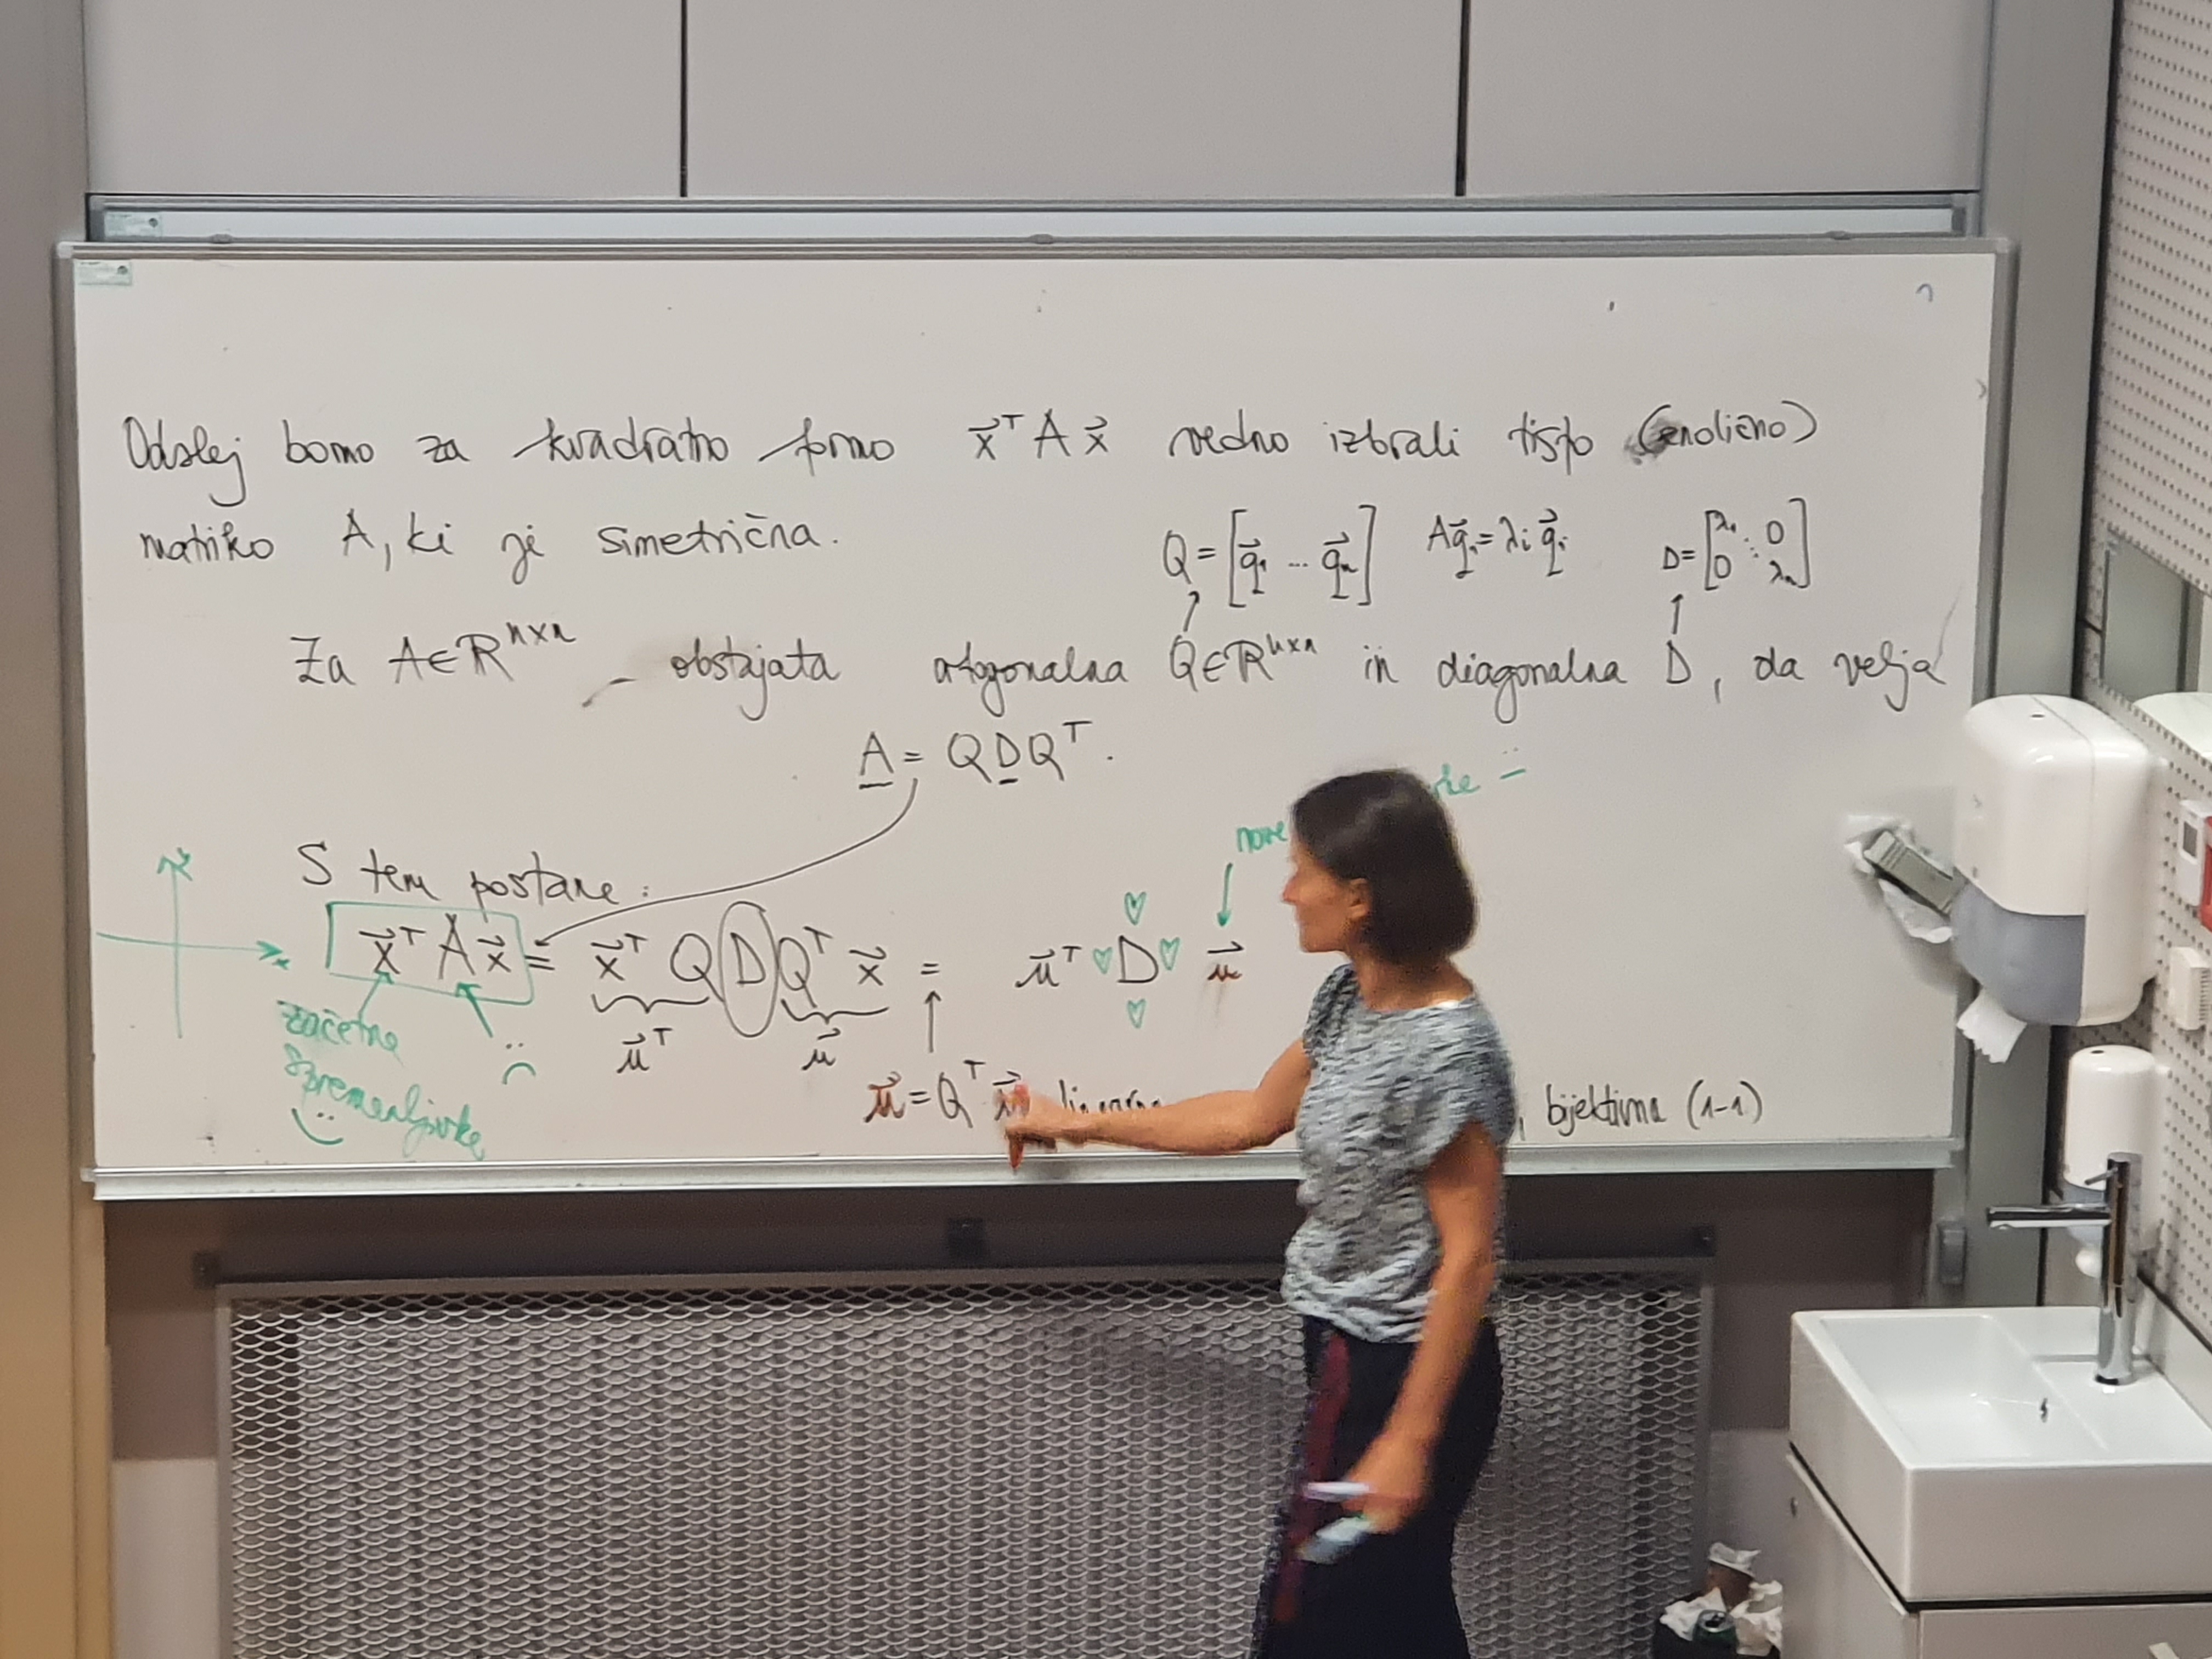 Odslej bomo za kvadratno formo x⃗ᵀ A x⃗ vedno izbrali tisto (enolično)
matriko A, ki je simetrična.
Q = [q⃗₁ ... q⃗ₙ] Aq⃗ᵢ = λᵢ q⃗ᵢ D = [λ₁ 0
0 ⋱ λₙ]
Za A ∈ ℝⁿˣⁿ obstajata ortogonalna Q ∈ ℝⁿˣⁿ in diagonalna D, da velja
A = QDQᵀ.
nove
S tem postane:
x⃗ᵀ A x⃗ = x⃗ᵀ Q D Qᵀ x⃗ = u⃗ᵀ D u⃗
u⃗ᵀ u⃗
začetne
spremenljivke
u⃗ = Qᵀ , bijektivna (1-1)